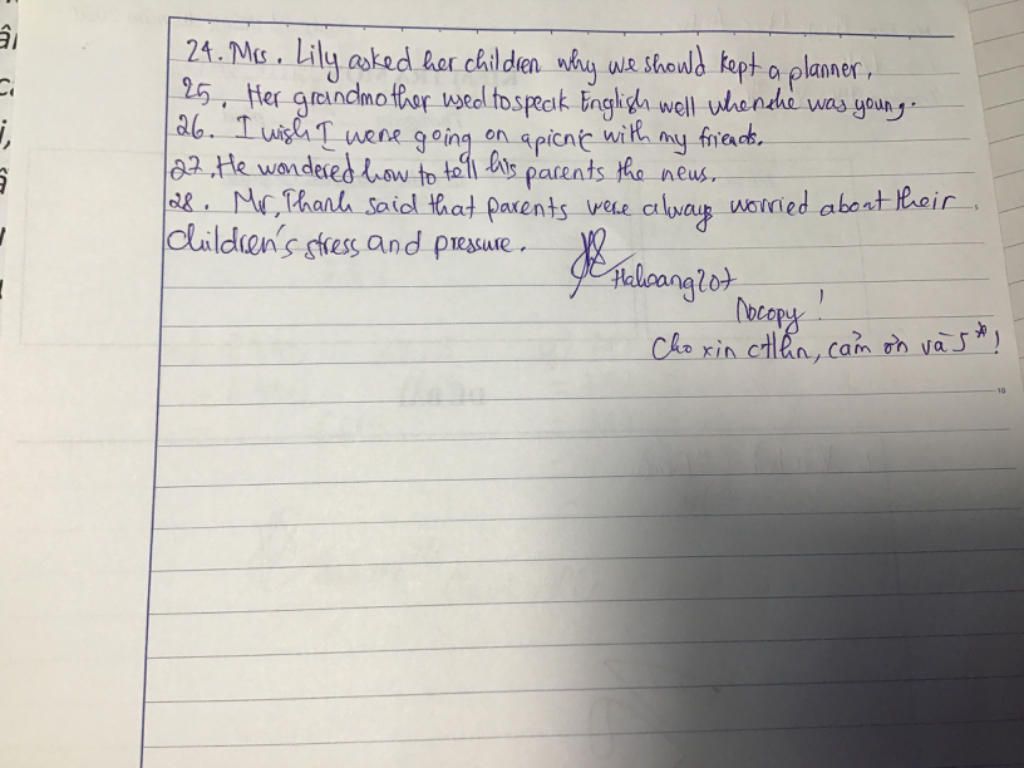 24. Mrs. Lily asked her children why we should kept a planner.
25. Her grandmother used to speak English well when she was young.
26. I wish I were going on a picnic with my friends.
27. He wondered how to tell his parents the news.
28. Mr. Thanh said that parents were always worried about their
children's stress and pressure.
Hahoang207
No copy!
Cho xin ctlhn, cảm ơn và 5*!